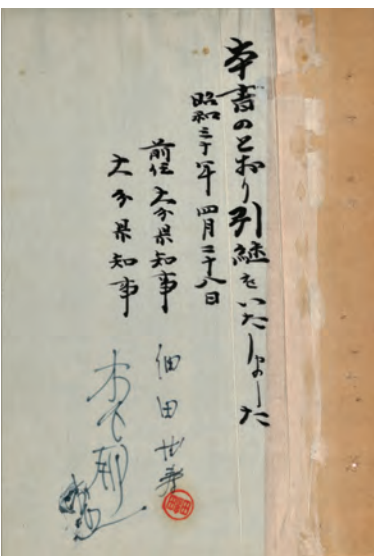 本書のとおり引継をいたしました
昭和三十年四月二十八日
前任大分県知事 細田徳寿
大分県知事 木下郁